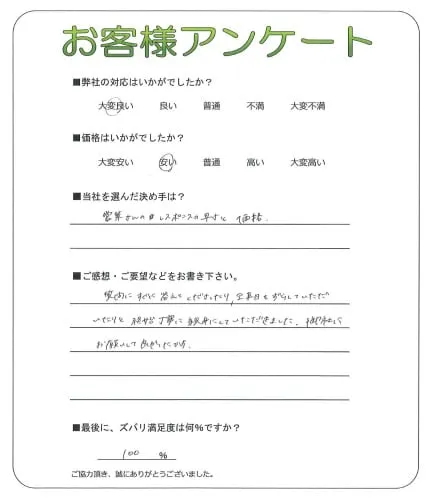 お客様アンケート
■弊社の対応はいかがでしたか？
大変良い 良い 普通 不満 大変不満
■価格はいかがでしたか？
大変安い 安い 普通 高い 大変高い
■当社を選んだ決め手は？
営業さんの レスポンスの早さと 価格.
■ご感想・ご要望などをお書き下さい。
質問に すぐに 答えて くださったり, 工事日を ずらしていただ
いたりと 丁寧に していただきました.
お願いして 良かったです.
■最後に、ズバリ満足度は何％ですか？
100 ％
ご協力頂き、誠にありがとうございました。